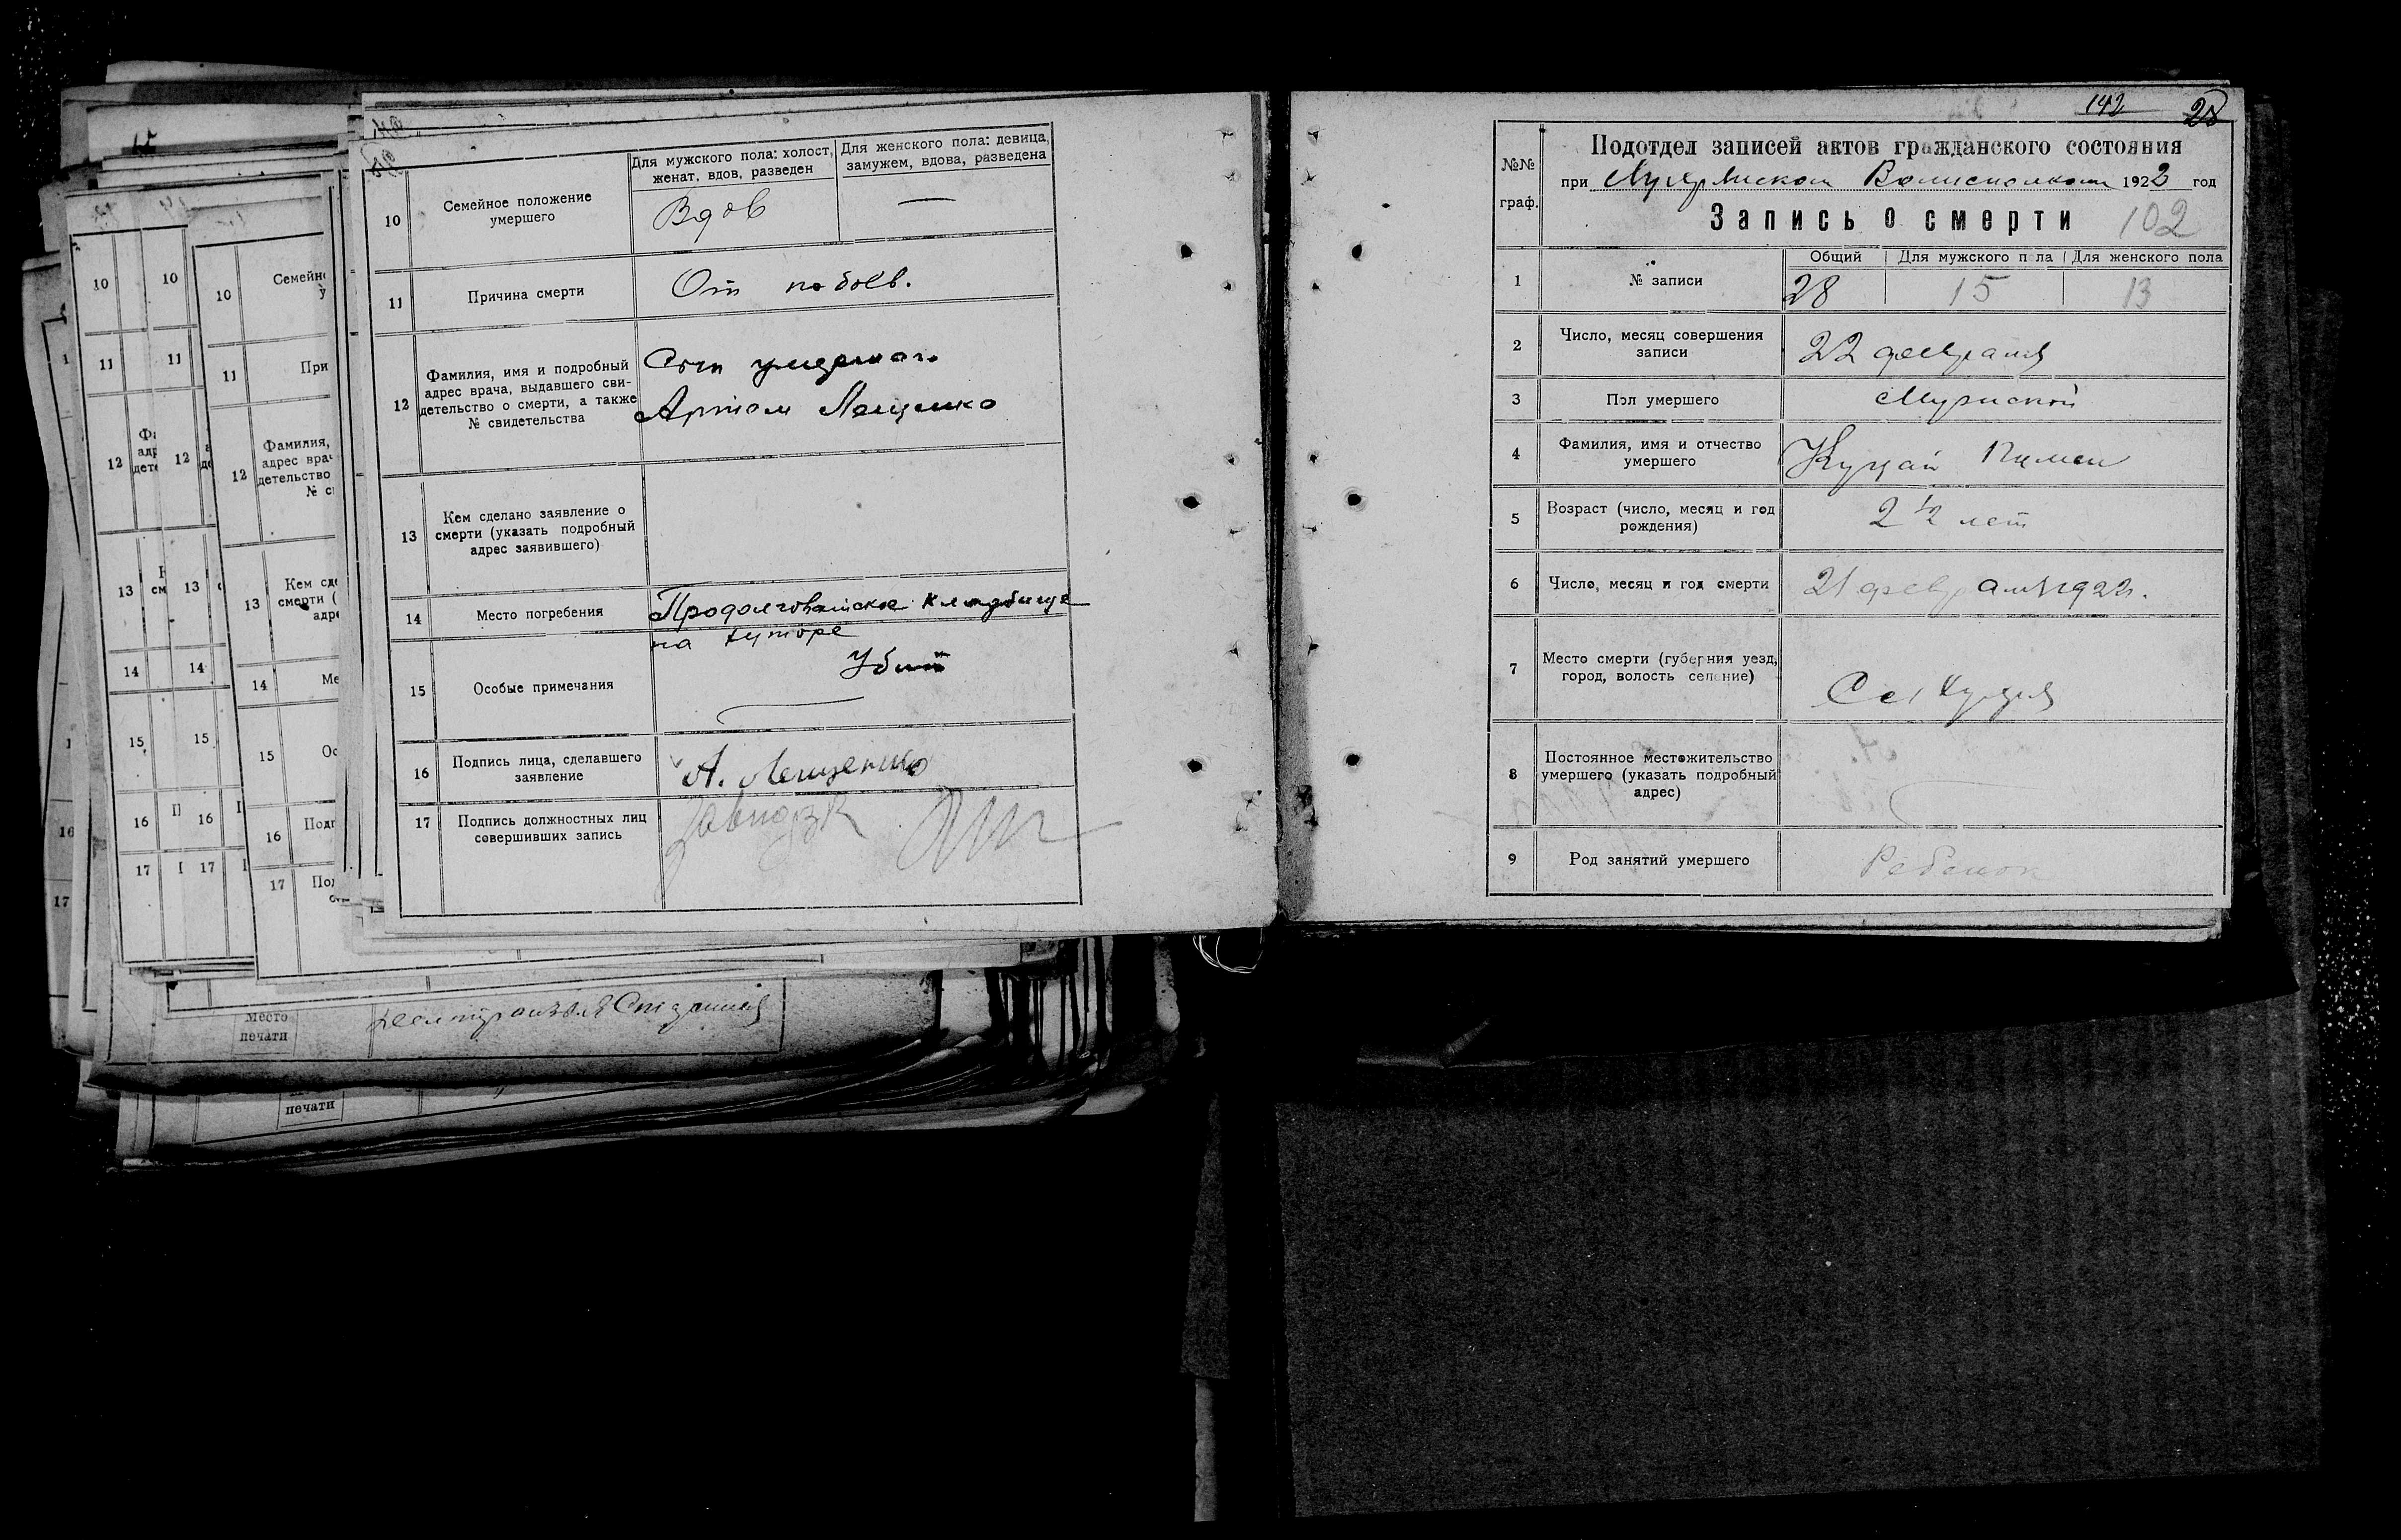 10
Семейное положение
умершего
Для мужского пола: холост,
женат, вдов, разведен
Для женского пола: девица,
замужем, вдова, разведена
Вдов
—
11
Причина смерти
От побоев.
12
Фамилия, имя и подробный
адрес врача, выдавшего сви-
детельство о смерти, а также
№ свидетельства
Сын умершаго
Артом Лещенко
13
Кем сделано заявление о
смерти (указать подробный
адрес заявившего)
14
Место погребения
кладбище
на хуторе
15
Особые примечания
Убит
16
Подпись лица, сделавшего
заявление
А. Лещенко
17
Подпись должностных лиц
совершивших запись
место
печати
печати
142
28
№№
граф.
Подотдел записей актов гражданского состояния
при Волисполкоме 1922 год
Запись о смерти
102
1
№ записи
Общий
Для мужского пола
Для женского пола
28
15
13
2
Число, месяц совершения
записи
22 февраля
3
Пол умершего
Мужской
4
Фамилия, имя и отчество
умершего
Куцай Пимен
5
Возраст (число, месяц и год
рождения)
2 1/2 лет
6
Число, месяц и год смерти
21 февраля 1922 г.
7
Место смерти (губерния уезд,
город, волость селение)
8
Постоянное местожительство
умершего (указать подробный
адрес)
9
Род занятий умершего
Ребенок